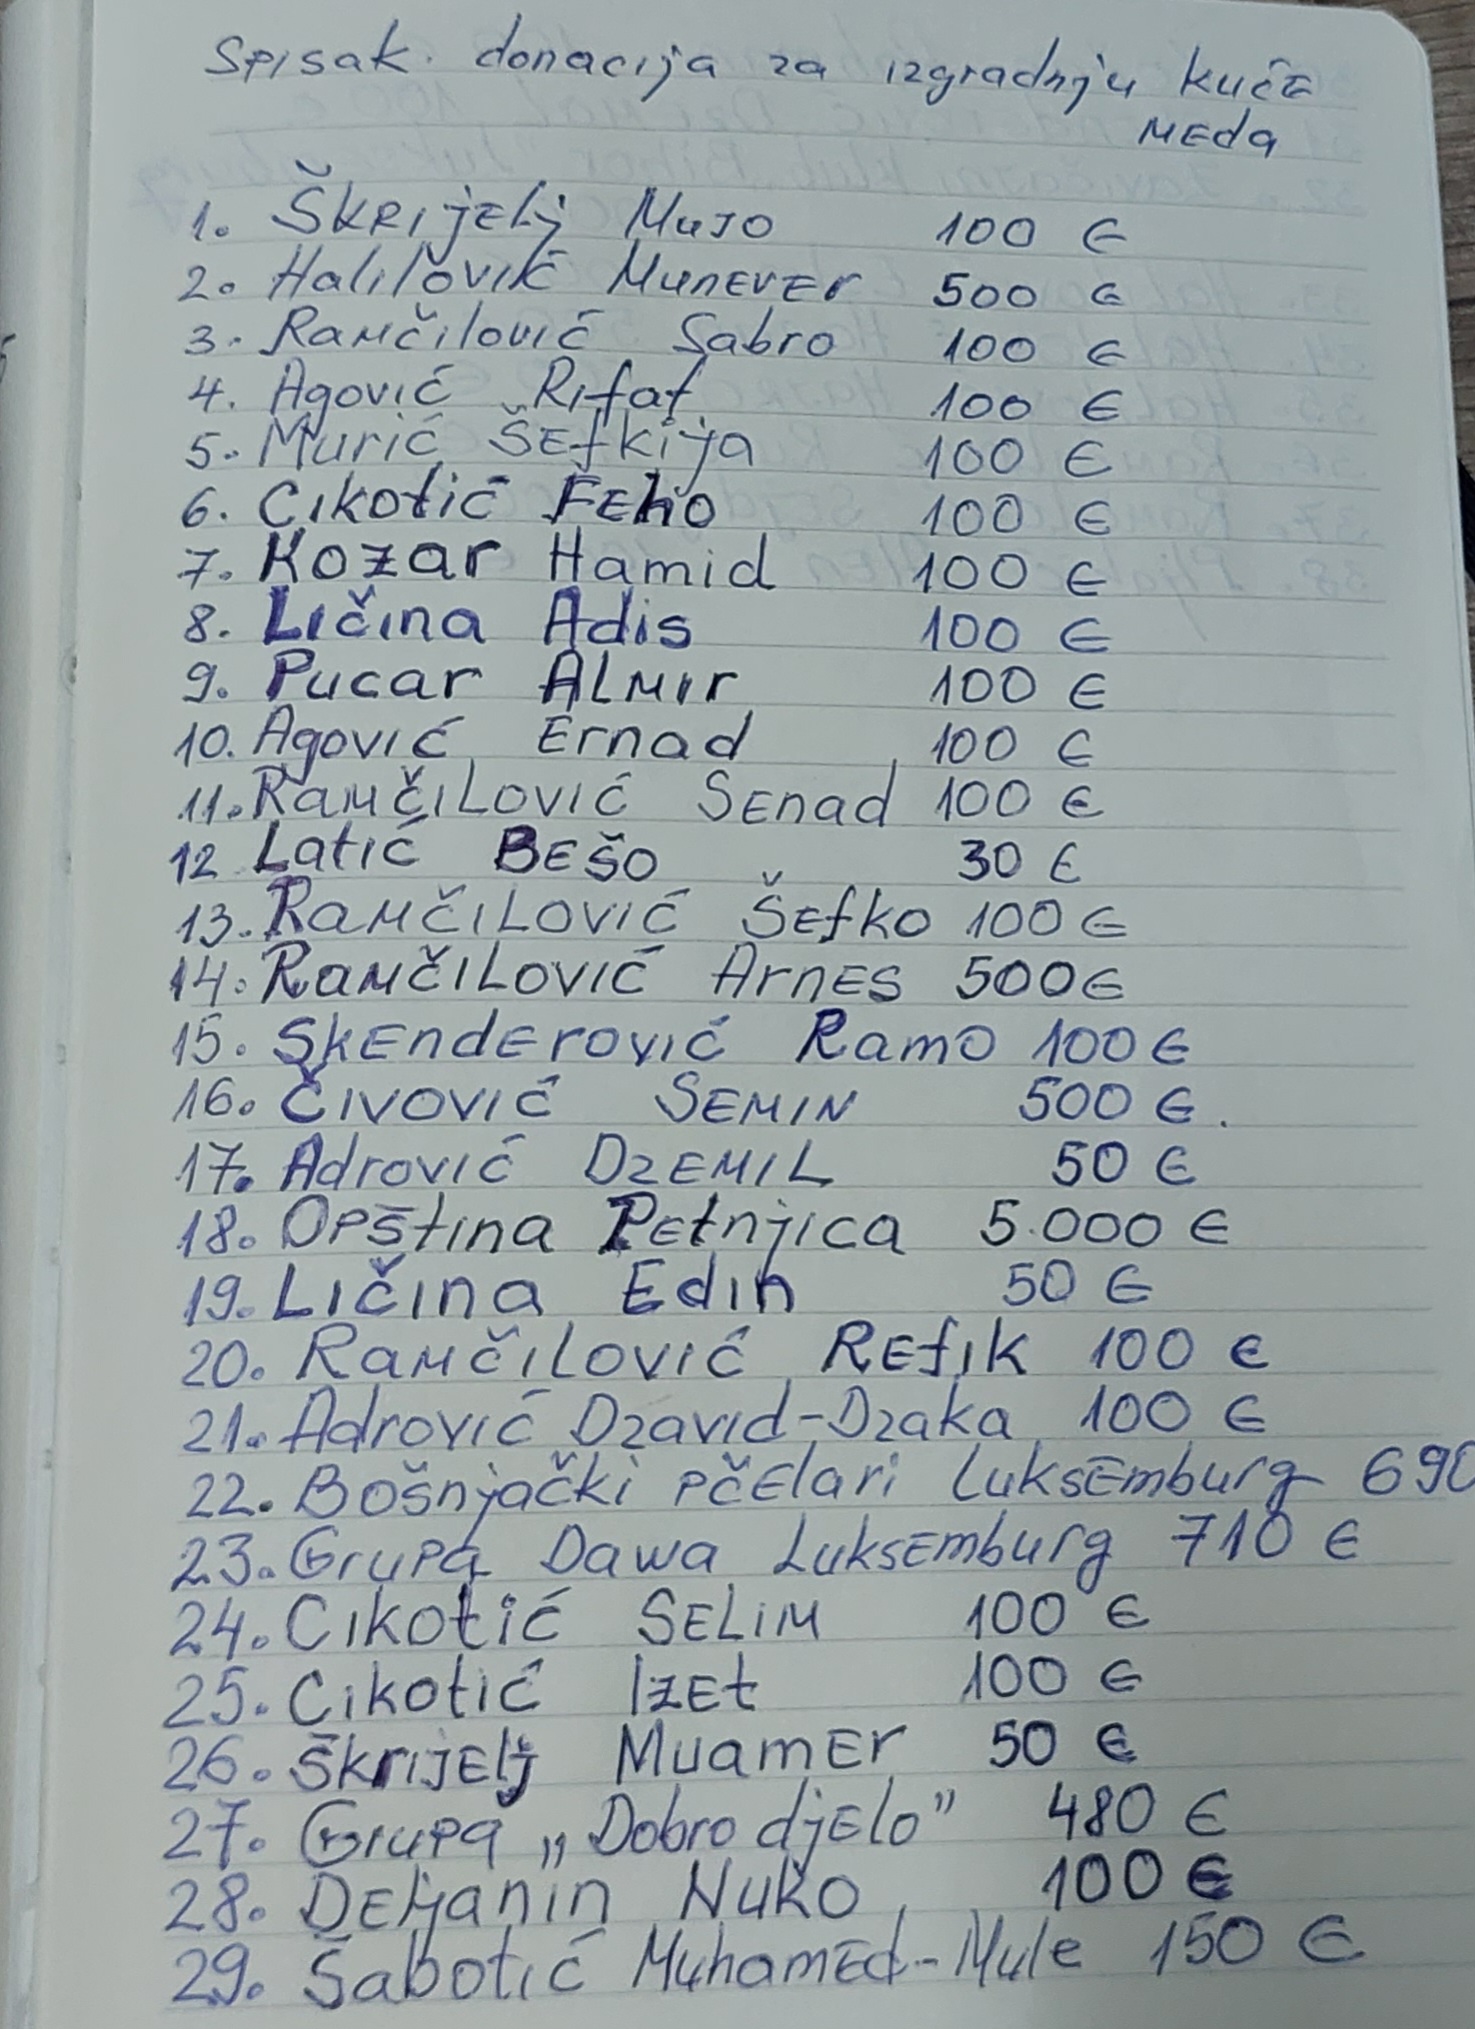 Spisak donacija za izgradnju kuće
meda
1. Škrijelj Mujo 100 €
2. Halilović Munever 500 €
3. Ramčilović Sabro 100 €
4. Agović Rifat 100 €
5. Murić Šefkija 100 €
6. Cikotić Feho 100 €
7. Kozar Hamid 100 €
8. Ličina Adis 100 €
9. Pucar Almir 100 €
10. Agović Ernad 100 €
11. Ramčilović Senad 100 €
12 Latić Bešo 30 €
13. Ramčilović Šefko 100 €
14. Ramčilović Arnes 500 €
15. Skenderović Ramo 100 €
16. Čivović Semin 500 €.
17. Adrović Dzemil 50 €
18. Opština Petnjica 5.000 €
19. Ličina Edin 50 €
20. Ramčilović Refik 100 €
21. Adrović Dzavid-Dzaka 100 €
22. Bošnjački pčelari Luksemburg 690
23. Grupa Dawa Luksemburg 710 €
24. Cikotić Selim 100 €
25. Cikotić Izet 100 €
26. Škrijelj Muamer 50 €
27. Grupa „Dobro djelo” 480 €
28. Dehanin Nuko 100 €
29. Šabotić Muhamed-Mule 150 €